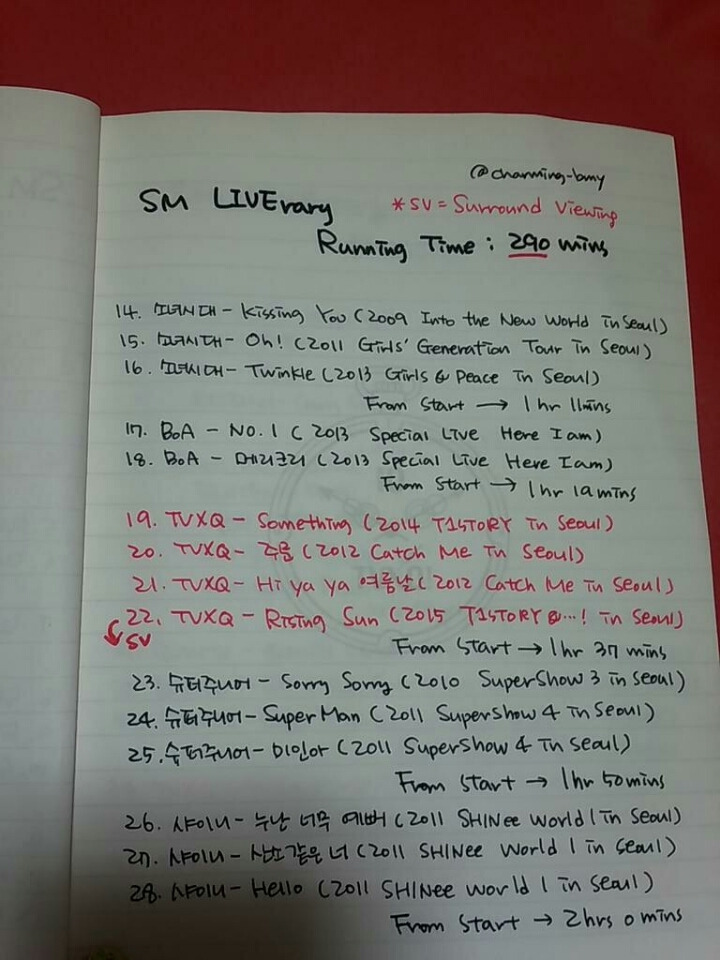 @charming-bmy
SM LIVErary
*SV = Surround Viewing
Running Time : 290 mins
14. 소녀시대 - Kissing You (2009 Into the New World in Seoul)
15. 소녀시대 - Oh! (2011 Girls' Generation Tour in Seoul)
16. 소녀시대 - Twinkle (2013 Girls & Peace in Seoul)
From Start → 1 hr 11mins
17. BoA - NO.1 (2013 Special Live Here I am)
18. BoA - 메리크리 (2013 Special Live Here I am)
From Start → 1 hr 19 mins
19. TVXQ - Something (2014 T1STORY in Seoul)
20. TVXQ - 주문 (2012 Catch Me in Seoul)
21. TVXQ - Hi ya ya 여름날 (2012 Catch Me in Seoul)
22. TVXQ - Rising Sun (2015 T1STORY &...! in Seoul)
SV
From Start → 1 hr 37 mins
23. 슈퍼주니어 - Sorry Sorry (2010 SuperShow 3 in Seoul)
24. 슈퍼주니어 - Super Man (2011 SuperShow 4 in Seoul)
25. 슈퍼주니어 - 미인아 (2011 SuperShow 4 in Seoul)
From Start → 1 hr 50 mins
26. 샤이니 - 누난 너무 예뻐 (2011 SHINee World 1 in Seoul)
27. 샤이니 - 산소같은 너 (2011 SHINee World 1 in Seoul)
28. 샤이니 - Hello (2011 SHINee World 1 in Seoul)
From Start → 2 hrs 0 mins